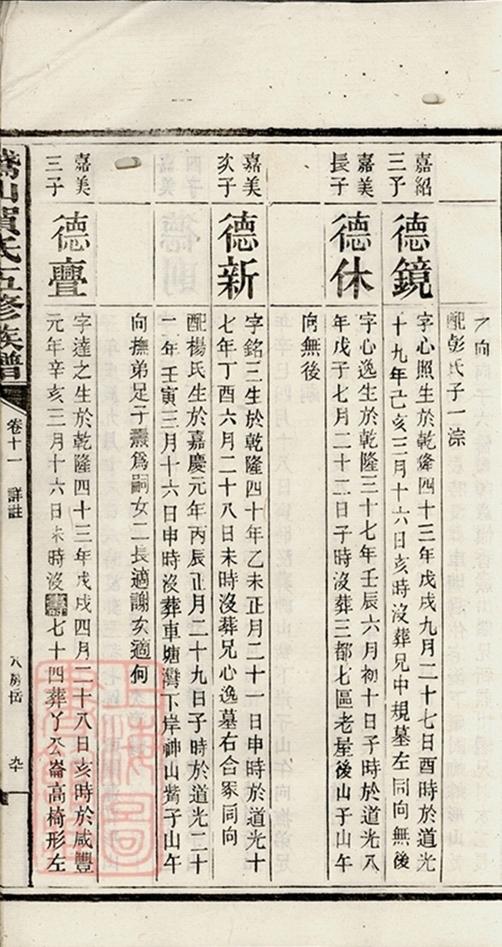 之向
配彭氏子一淙
嘉紹
三子
德鏡
字心照生於乾隆四十三年戊戌九月二十七日酉時於道光
十九年己亥三月十六日亥時沒葬兄中規墓左同向無後
嘉美
長子
德休
字心逸生於乾隆三十七年壬辰六月初十日子時於道光八
年戊子七月二十二日子時沒葬三都七區老屋後山子山午
向無後
嘉美
次子
德新
字銘三生於乾隆四十年乙未正月二十一日申時於道光十
七年丁酉六月二十八日未時沒葬兄心逸墓右合冢同向
配楊氏生於嘉慶元年丙辰正月二十九日子時於道光二十
二年壬寅三月十六日申時沒葬車塘灣下岸神山觜子山午
向撫弟足子燾爲嗣女二長適謝次適何
嘉美
三子
德亹
字達之生於乾隆四十三年戊戌四月二十八日亥時於咸豐
元年辛亥三月十六日未時沒壽七十四葬丫次崙高椅形左
山賀氏五修族譜
卷十一
詳註
房岳